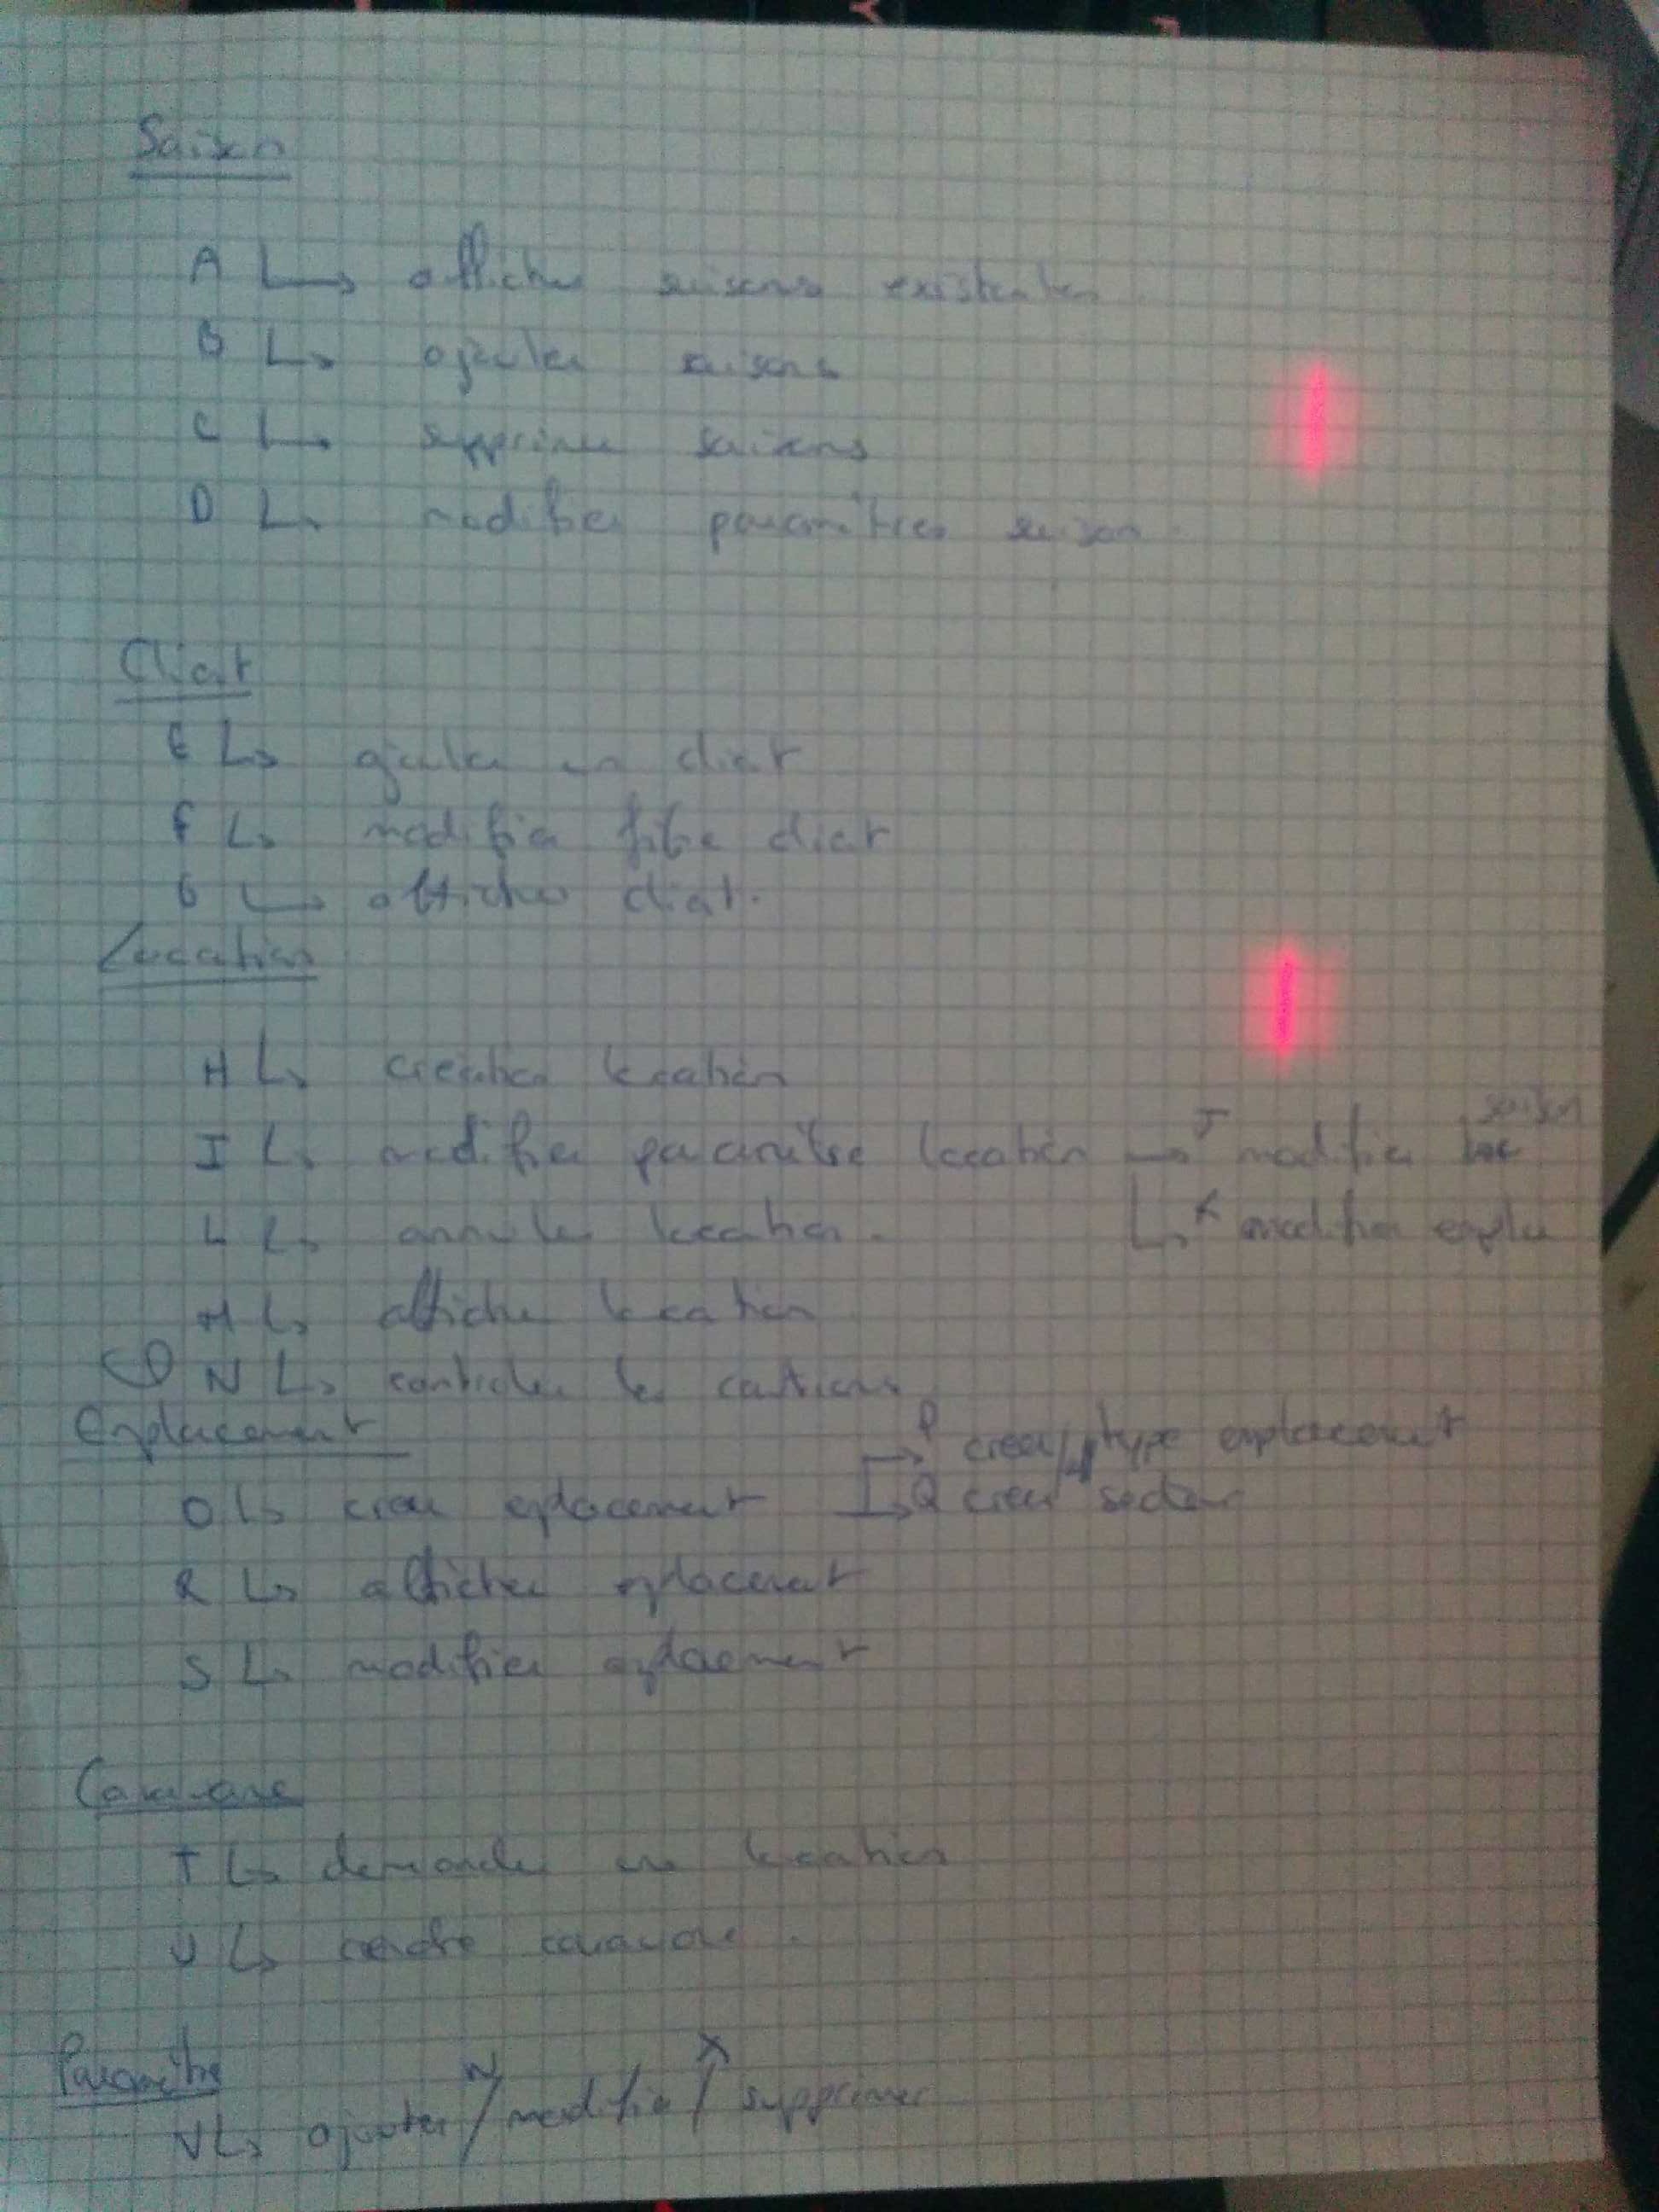 Saison
A ↳ afficher saisons existentes
B ↳ ajouter saisons
C ↳ supprimer saisons
D ↳ modifier paramètres saison.
Client
E ↳ ajouter un client
F ↳ modifier fiche client
G ↳ afficher client.
Location
H ↳ création location
I ↳ modifier paramètre location → J modifier saison
L ↳ annuler location. ↳ K modifier empla
M ↳ afficher location
N ↳ controler les cautions
Emplacement
→ P creer type emplacement
O ↳ creer emplacement ↳ Q creer secteur
R ↳ afficher emplacement
S ↳ modifier emplacement
Caravane
T ↳ demander une location
U ↳ rendre caravane.
Paramètre
W X
V ↳ ajouter / modifier / supprimer